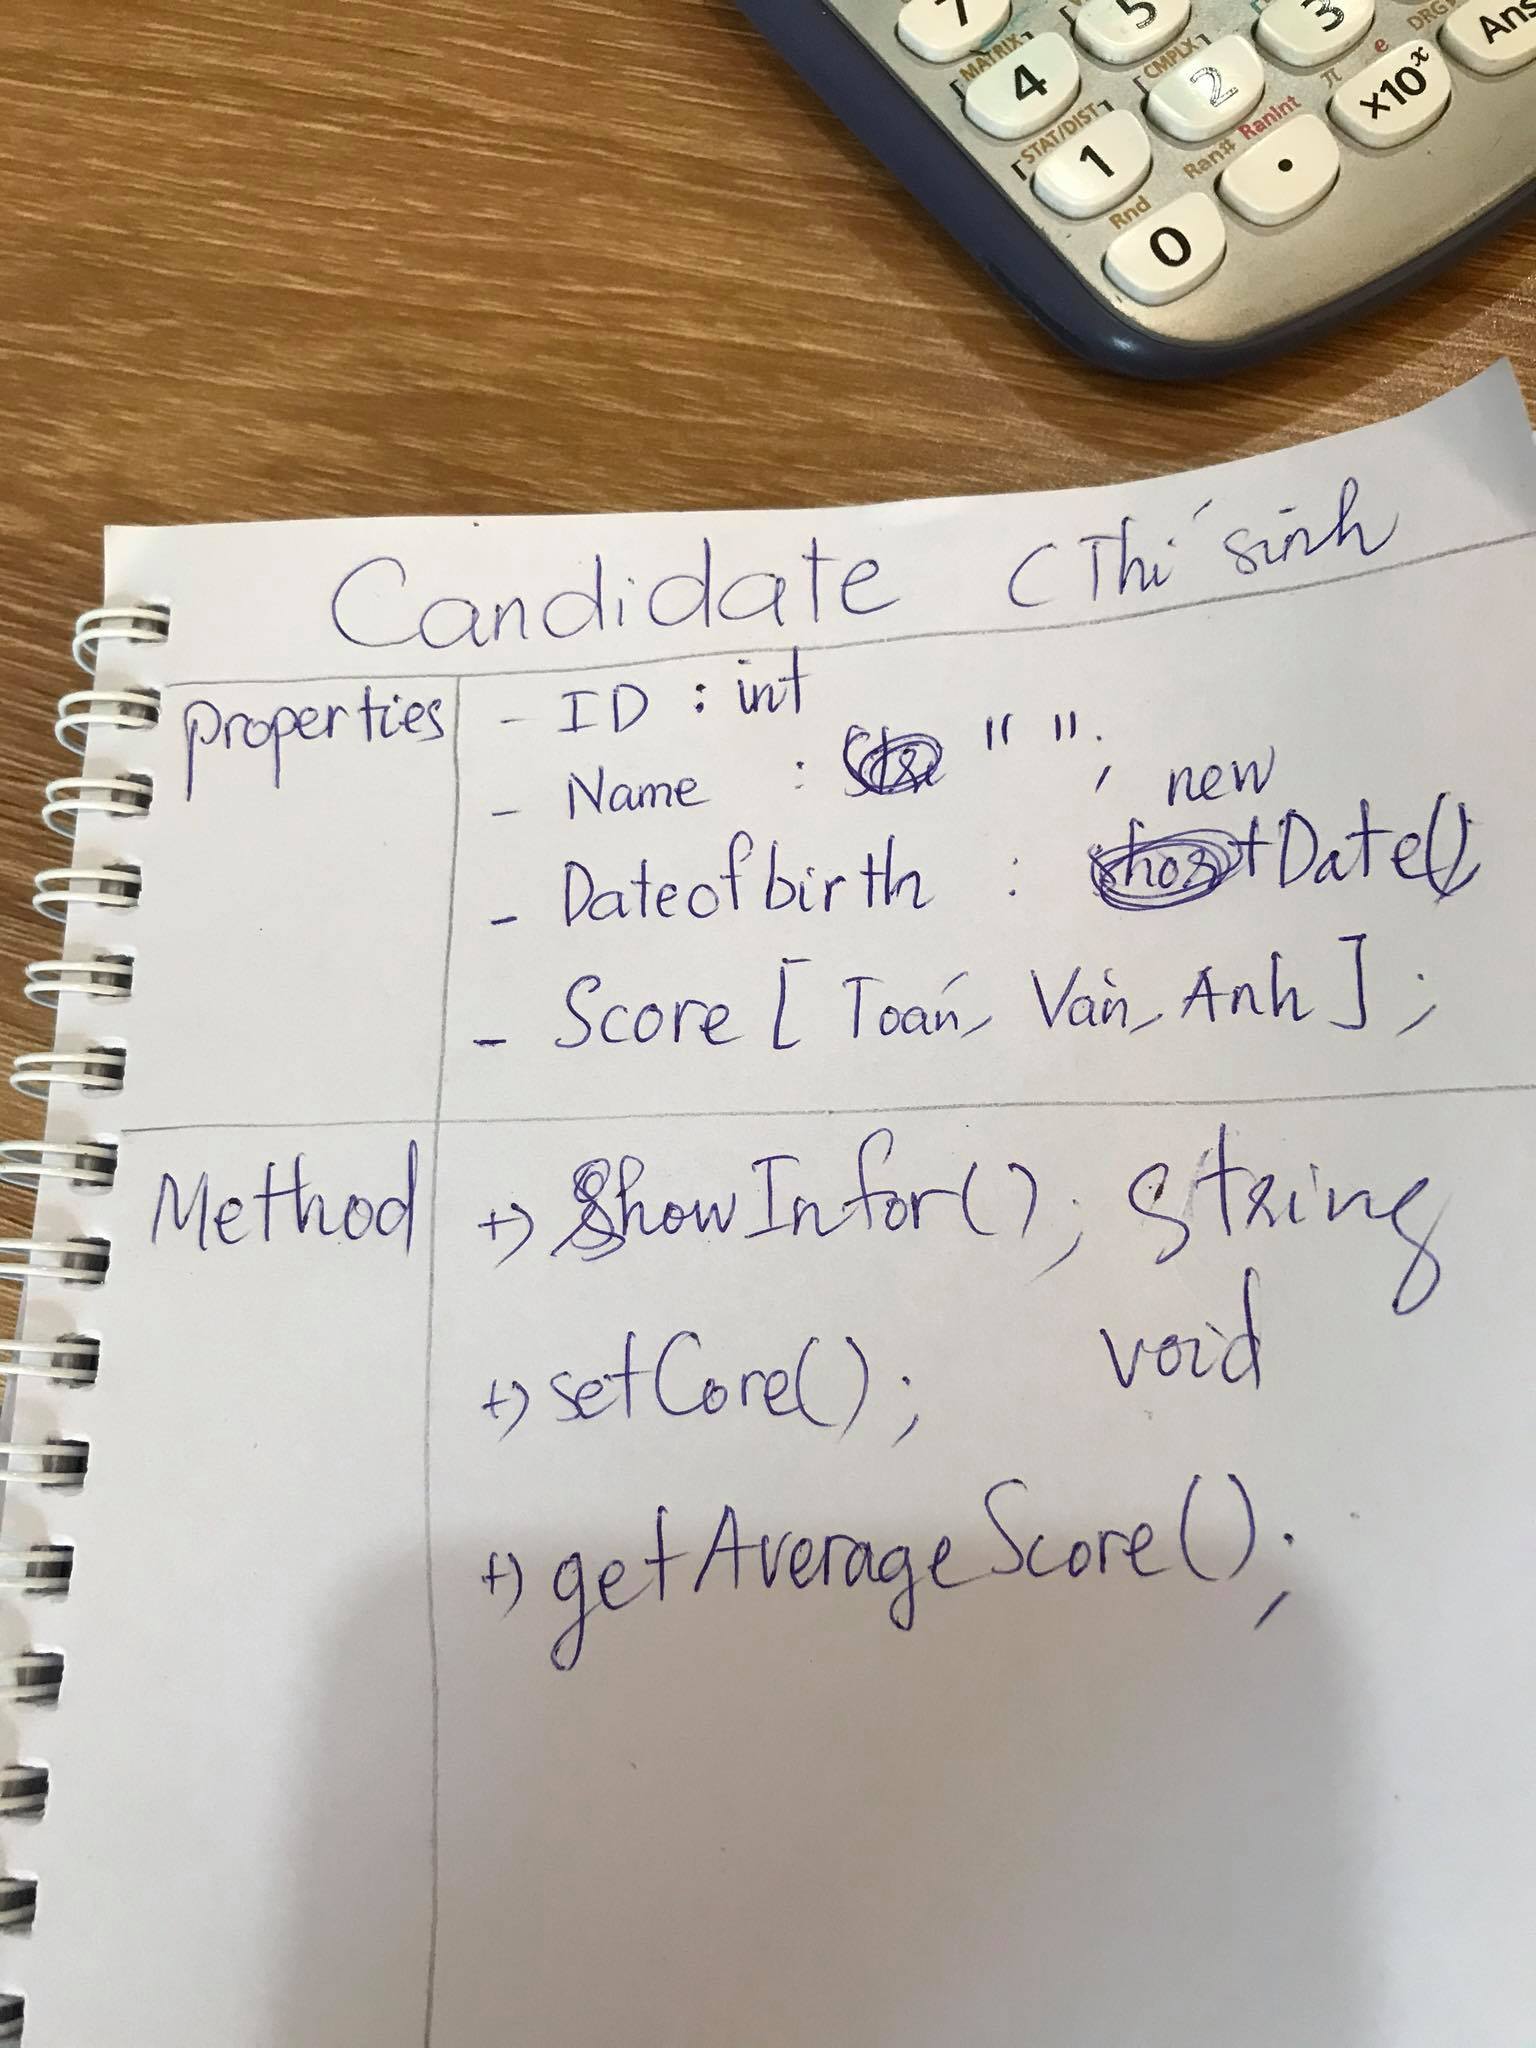 7 5 3 Ans
[MATRIX] [CMPLX] π e DRG
4 2 ×10ˣ
[STAT/DIST] Ran# RanInt
1 .
Rnd
0
Candidate (Thí sinh
Properties - ID : int
- Name : " ";
new
- Dateofbirth : Date();
- Score [Toán, Văn, Anh];
Method +) ShowInfor(); string
+) setCore(); void
+) getAverageScore();